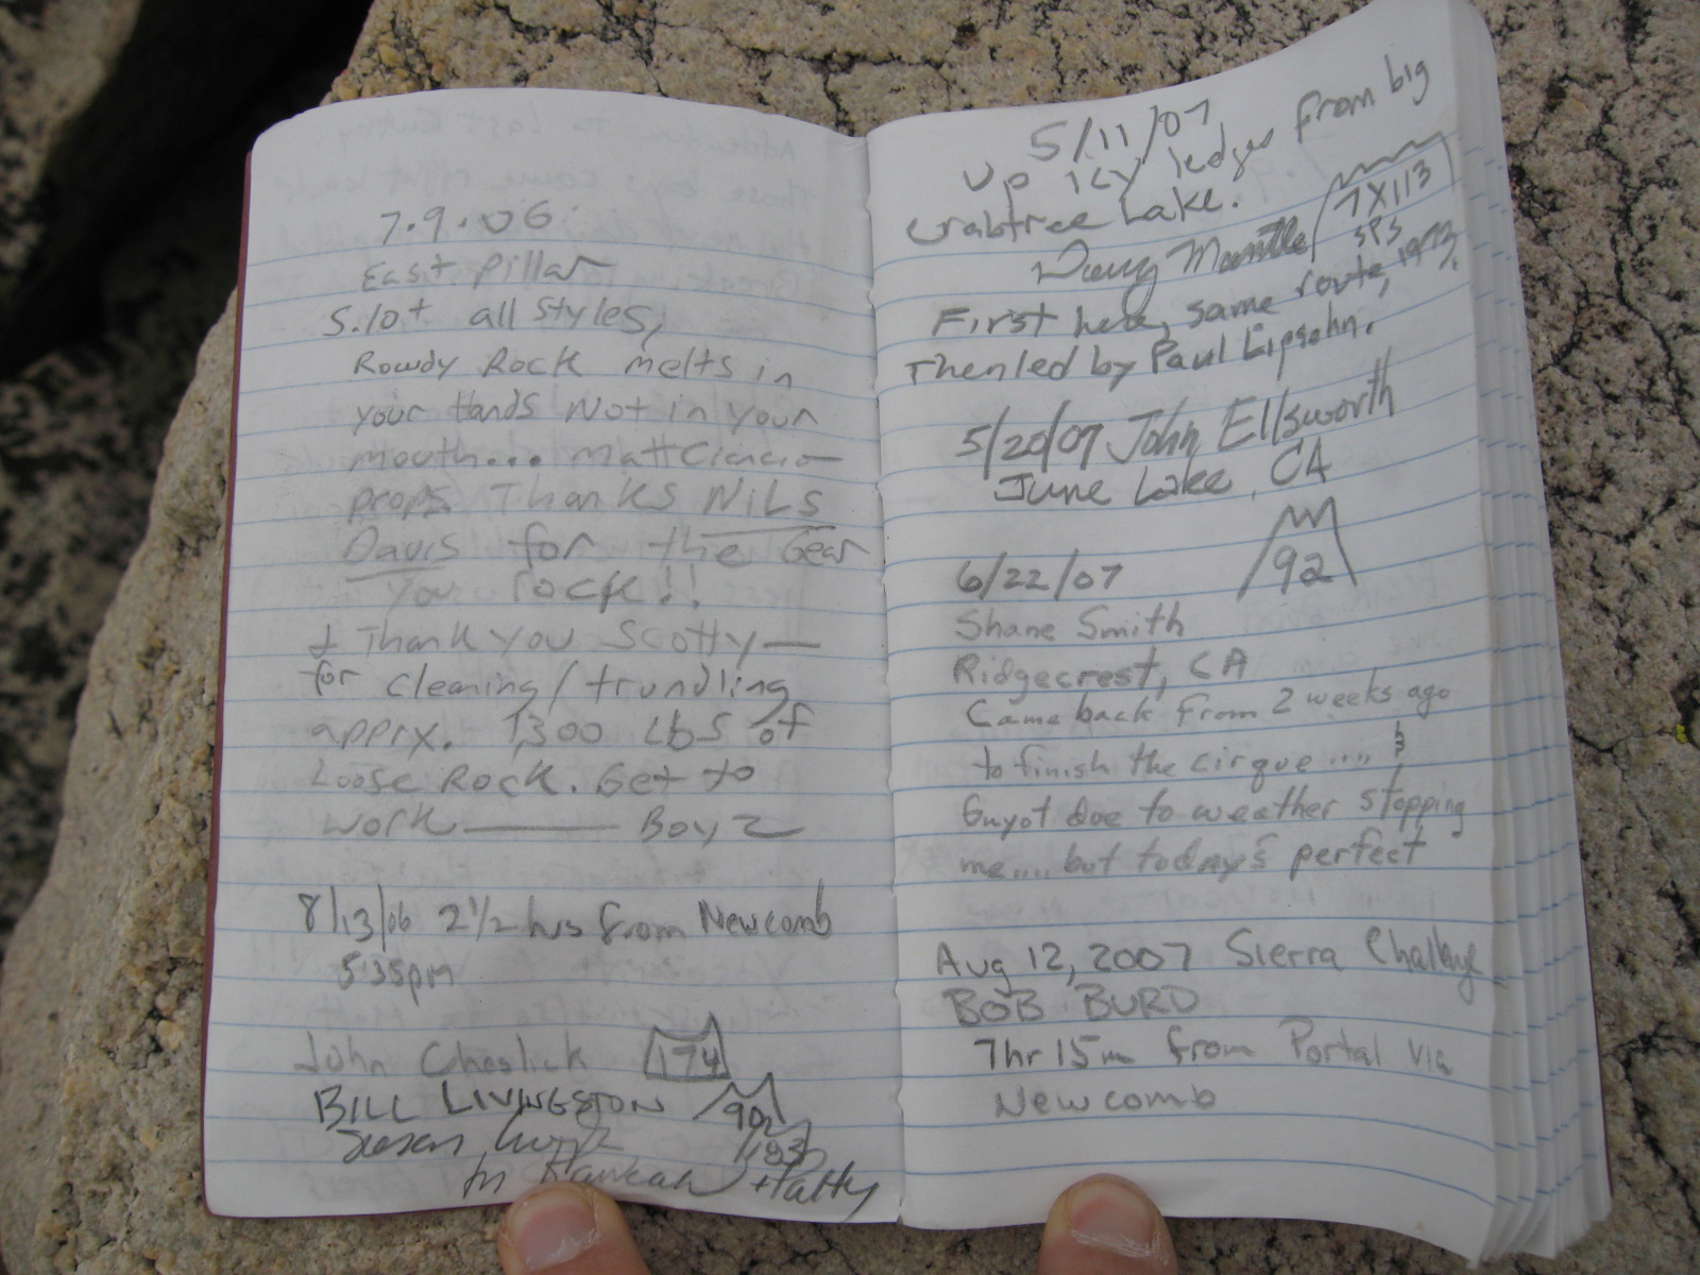 7.9.06
East Pillar
5.10+ all styles,
Rowdy Rock melts in
your Hands Not in your
mouth... Matt Ciancio
props Thanks NiLS
Davis for the Gear
you rock!!
& Thank you Scotty —
for cleaning/trundling
apprx. 1,300 Lbs of
Loose Rock. Get to
work ——— Boyz
8/13/06 2 1/2 hrs from Newcomb
5:35pm
John Cheslick 174
BILL LIVINGSTON 90
Susan 193
Mt Kaweah + Patty
5/11/07
Up icy ledges from big
Crabtree Lake.
Doug Mantle 7X113
SPS
First here, same route, 1973,
Then led by Paul Lipsohn.
5/20/07 John Ellsworth
June Lake, CA
92
6/22/07
Shane Smith
Ridgecrest, CA
Came back from 2 weeks ago
to finish the cirque .... &
Guyot due to weather stopping
me.... but today's perfect
Aug 12, 2007 Sierra Challenge
BOB BURD
7hr 15m from Portal via
Newcomb